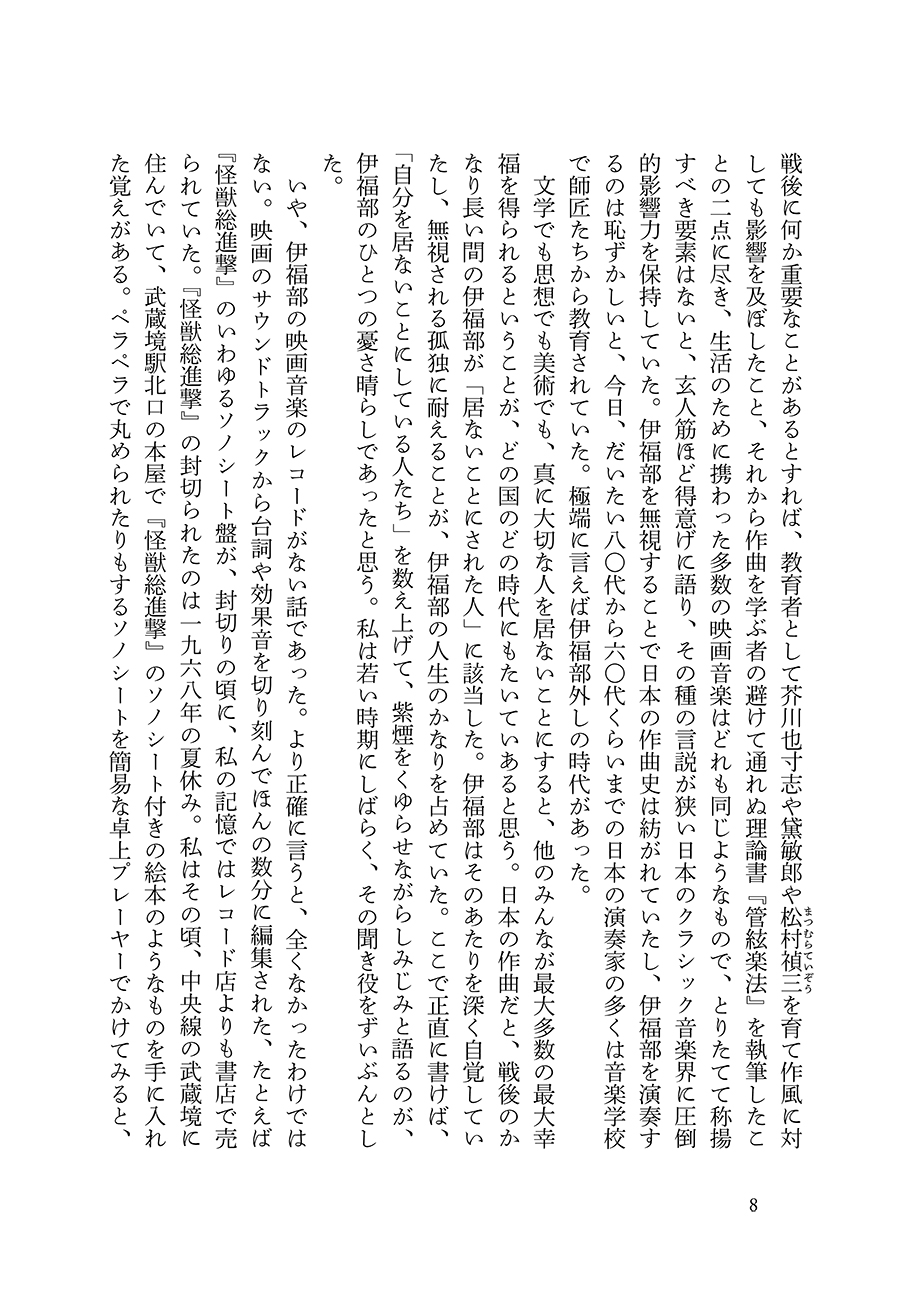 戦後に何か重要なことがあるとすれば、教育者として芥川也寸志や黛敏郎や松村禎三を育て作風に対
まつむらていぞう
しても影響を及ぼしたこと、それから作曲を学ぶ者の避けて通れぬ理論書『管絃楽法』を執筆したこ
との二点に尽き、生活のために携わった多数の映画音楽はどれも同じようなもので、とりたてて称揚
すべき要素はないと、玄人筋ほど得意げに語り、その種の言説が狭い日本のクラシック音楽界に圧倒
的影響力を保持していた。伊福部を無視することで日本の作曲史は紡がれていたし、伊福部を演奏す
るのは恥ずかしいと、今日、だいたい八〇代から六〇代くらいまでの日本の演奏家の多くは音楽学校
で師匠たちから教育されていた。極端に言えば伊福部外しの時代があった。
文学でも思想でも美術でも、真に大切な人を居ないことにすると、他のみんなが最大多数の最大幸
福を得られるということが、どの国のどの時代にもたいていあると思う。日本の作曲だと、戦後のか
なり長い間の伊福部が「居ないことにされた人」に該当した。伊福部はそのあたりを深く自覚してい
たし、無視される孤独に耐えることが、伊福部の人生のかなりを占めていた。ここで正直に書けば、
「自分を居ないことにしている人たち」を数え上げて、紫煙をくゆらせながらしみじみと語るのが、
伊福部のひとつの憂さ晴らしであったと思う。私は若い時期にしばらく、その聞き役をずいぶんとし
た。
いや、伊福部の映画音楽のレコードがない話であった。より正確に言うと、全くなかったわけでは
ない。映画のサウンドトラックから台詞や効果音を切り刻んでほんの数分に編集された、たとえば
『怪獣総進撃』のいわゆるソノシート盤が、封切りの頃に、私の記憶ではレコード店よりも書店で売
られていた。『怪獣総進撃』の封切られたのは一九六八年の夏休み。私はその頃、中央線の武蔵境に
住んでいて、武蔵境駅北口の本屋で『怪獣総進撃』のソノシート付きの絵本のようなものを手に入れ
た覚えがある。ペラペラで丸められたりもするソノシートを簡易な卓上プレーヤーでかけてみると、
8